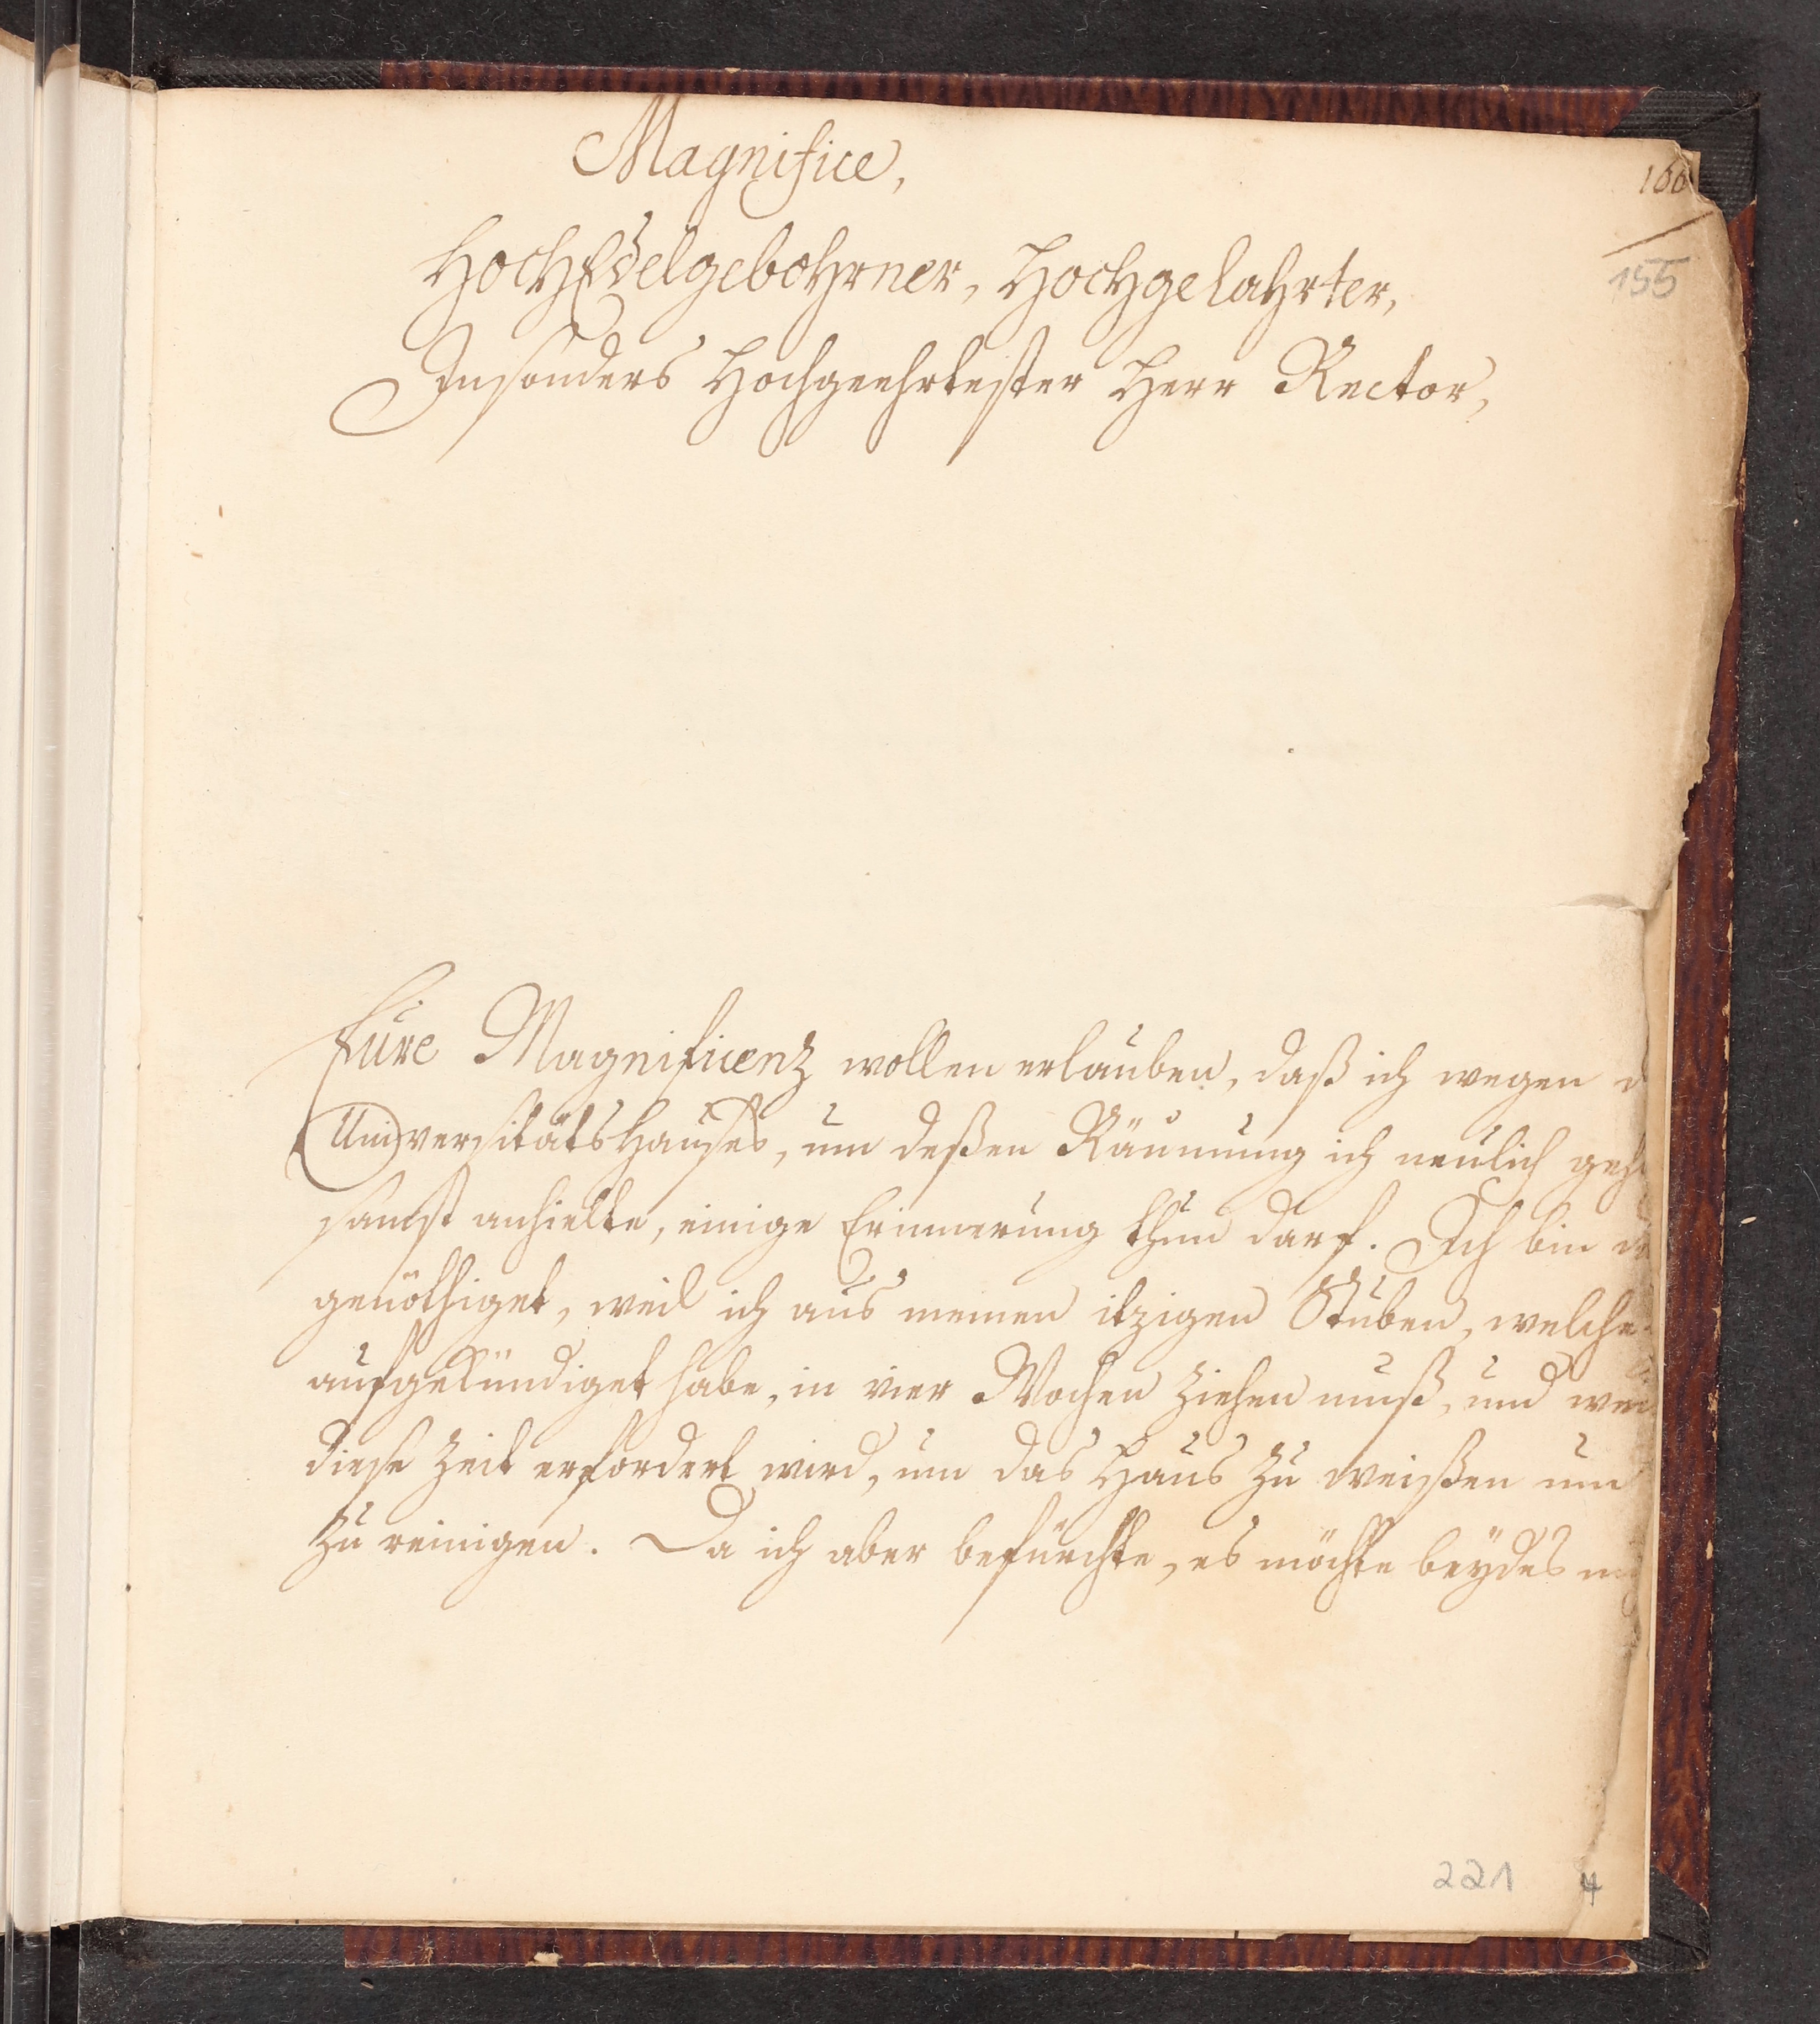 Magnifice,
160
HochEdelgebohrner, Hochgelahrter,
155
Insonders Hochgeehrtester Herr Rector,
Eure Magnificenz wollen erlauben, daß ich wegen
Universitätshauses, um deßen Räumung ich neulich geh
samst anhielte, einige Erinnerung thun darf. Ich bin
genöthiget, weil ich aus meinen itzigen Stuben, welche
aufgekündiget habe, in vier Wochen ziehen muß, und
diese Zeit erfordert wird, um das Haus zu weißen und
zu reinigen. Da ich aber befürchte, es möchte beÿdes
221 4